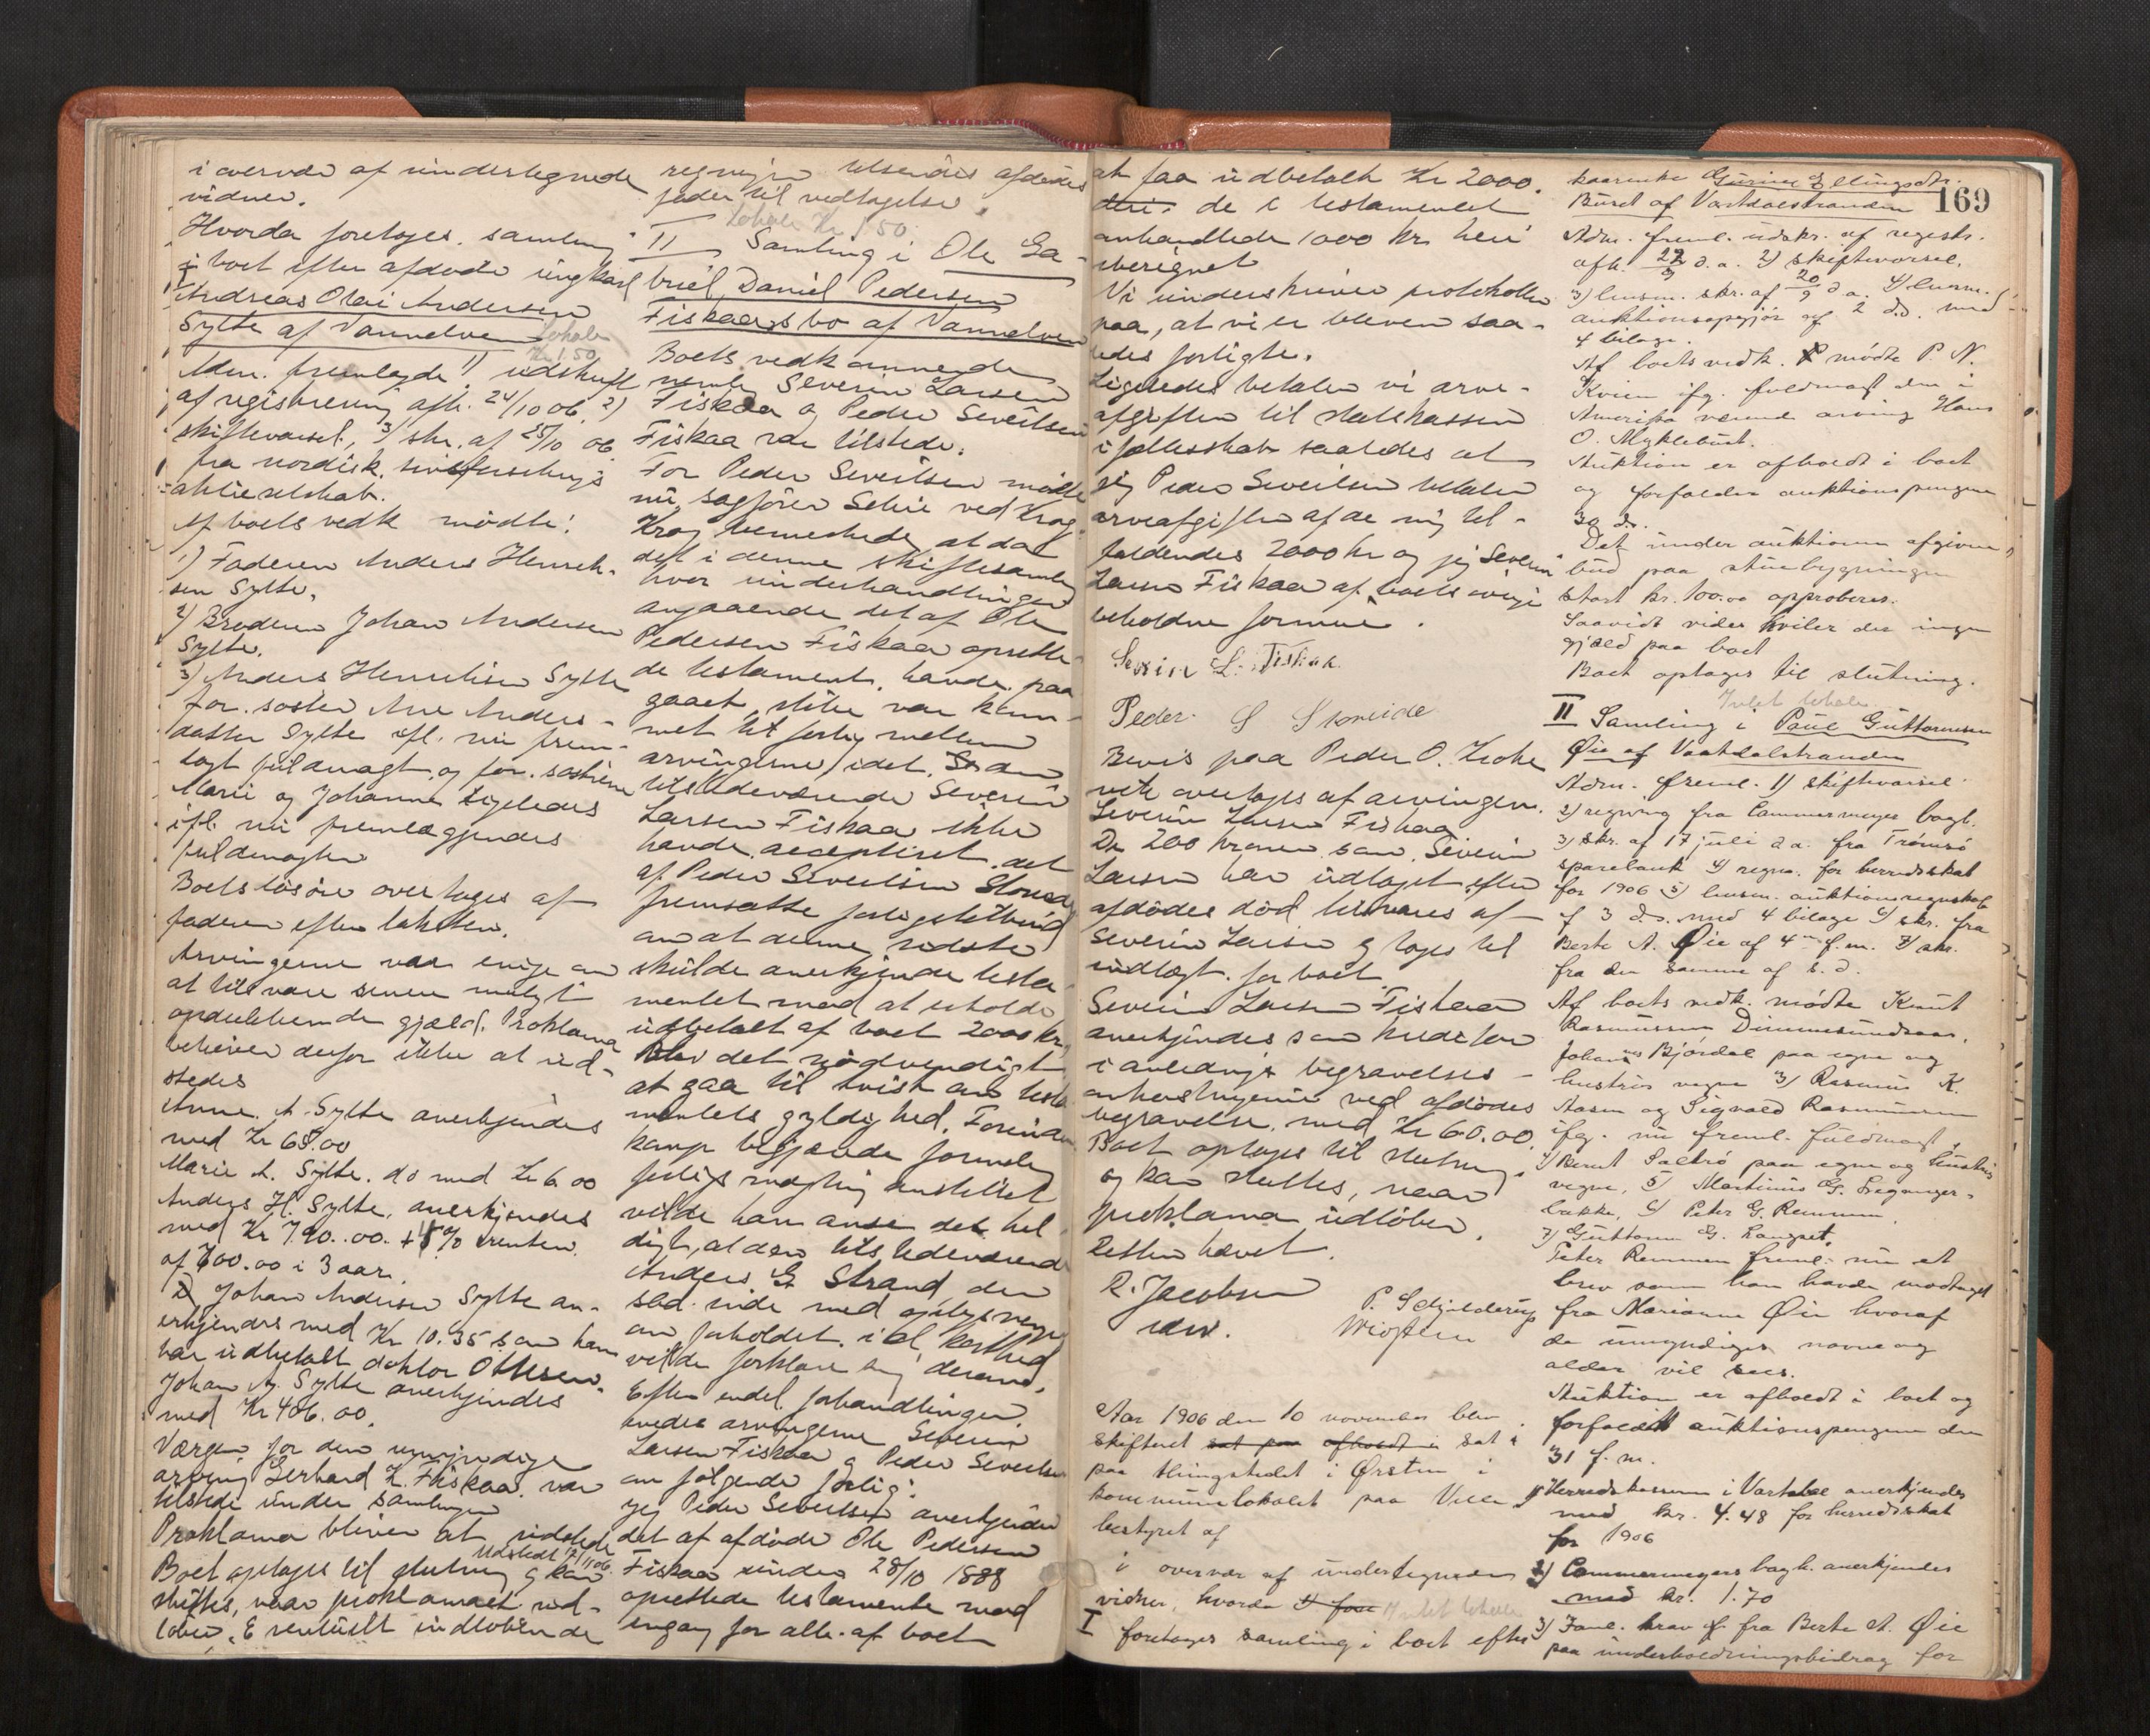 i overvær af undertegnede
vidner.
Hvorda foretoges samling
i boet efter afdøde ungkarl
Andreas Olai Andersen
Sylte af Vannelven
Lokale
Kr 1.50
Adm. fremlagde 1) udskrift
af registrering afh. 24/10 06. 2)
skiftevarsel, 3) skr. af 25/10 06
fra nordisk livsforsikrings
aktieselskab.
Af boets vedk mødte:
1) Faderen Anders Henrik-
sen Sylte.
2) Broderen Johan Andersen
Sylte.
3) Anders Henriksen Sylte
for søster Ane Anders-
datter Sylte ifl. nu frem-
lagt fuldmagt, og for søstrene
Marie og Johanne ligeledes
ifl. nu fremlæggendes
fuldmagter
Boets løsøre overtages af
faderen efter taksten.
Arvingerne var enige om
at tilsvare senere muligt
opdukkende gjæld. Proklama
behøver derfor ikke at ud-
stedes
Anne A. Sylte anerkjendes
med Kr 65.00
Marie A. Sylte. do med Kr 6.00
Anders H. Sylte, anerkjendes
med Kr 790.00. + 5 % renter
af 700.00 i 3 aar.
Johan Andersen Sylte an-
erkjendes med Kr 10.35 som han
har udbetalt doktor Ottesen.
Johan A. Sylte anerkjendes
med Kr 406.00.
Værgen for den umyndige
arving Gerhard L. Fiskaa var
tilstede under samlingen
Proklama bliver at udstede
Udstedt 12/11 06.
Boet optages til slutning og kan
sluttes, naar proklamaet ud-
løber. Eventuelt indløbende
regninger tilsendes afdødes
fader til vedtagelse.
Lokale Kr 1.50
II Samling i Ole Ga-
briel Daniel Pedersen
Fiskaas bo af Vannelven
Boets vedkommende
nemlig Severin Larsen
Fiskaa og Peder Severtsen
Fiskaa var tilstede.
For Peder Severtsen mødte
nu sagfører Selvie ved Krag
Krag bemerkede at da
det i denne skiftesamling
hvor underhandlinger
angaaende det af Ole
Pedersen Fiskaa oprette-
de testament, havde paa-
gaaet, ikke var kom-
met til forlig mellem
arvingerne, idet den
tilstedeværende Severin
Larsen Fiskaa ikke
havde accepteret det
af Peder Severtsen Storeide
fremsatte forligstilbud
om at denne sidste
skulde anerkjende testa-
mentet mod at erholde
udbetalt af boet 2000 kr,
Blev det nødvendigt
at gaa til tvist om testa
mentets gyldighed. Forinden
kamp begjærede formelig
forligs mægling anstillet
vilde han anse det hel
digt, at den tilstedeværende
Anders G Strand, der
sad inde med oplysninger
om forholdet i al korthed
vilde forklare sig derom.
Efter endel forhandlinger
enedes arvingerne Severin
Larsen Fiskaa og Peder Severtsen
om følgende forlig:
Jeg Peder Severtsen anerkjender
det af afdøde Ole Pedersen
Fiskaa under 28/10 1888
oprettede testamente mod
engang for alle af boet
at faa udbetalt Kr 2000.
deri de i testamentet
anhandlede 1000 kr heri
iberegnet
Vi underskriver protokollen
paa, at vi er bleven saa-
ledes forligte.
Ligeledes betaler vi arve-
afgiften til statskassen
i fællesskab saaledes at
jeg Peder Severtsen betaler
arveafgiften af de mig til-
faldendes 2000 kr og jeg Severin
Larsen Fiskaa af boets øvrige
beholdne formue.
Severin L. Fiskaa.
Peder S Storeide
Bevis paa Peder O. Kroke
vik overtages af arvingen
Severin Larsen Fiskaa
De 200 kroner som Severin
Larsen har udtaget efter
afdødes død tilsvares af
Severin Larsen og tages til
indtægt for boet.
Severin Larsen Fiskaa
anerkjendes som kreditor
i anledning begravelses-
omkostningerne ved afdødes
begravelse, med Kr 60.00.
Boet optages til slutning
og kan sluttes, naar
proklama udløber.
Retten hævet.
R. Jacobsen
const.
P. Schjelderup
Aar 1906 den 10 november blev
skifteret sat paa afholdt i sat i
paa thingstedet i Ørsten i
kommunelokalet paa Viken
bestyret af
i overvær af undertegnede
vidner, hvorda Intet lokale
I foretoges samling i boet efter
169
kaarenke Gurine Ellingsdtr.
Buset af Vartdalstranden
Adm. freml. udskr. af registr.
afh. 22/9 d.a. 2) skiftevarsel.
3) lensm. skr. af 20/9 d.a. 4) lensm.
auktionsopgjør af 2 d.d. med
4 bilage.
Af boets vedk. mødte P. N.
Kvien ifg. fuldmagt den i
Amerika værende arving Hans
O. Myklebust.
Auktion er afholdt i boet
og forfalder auktionspengene
30 ds.
Det under auktionen afgivne
bud paa stuebygningen
stort kr. 100.00 approberes.
Saavidt vides hviler der ingen
gjæld paa boet
Boet optages til slutning.
Intet lokale
II Samling i Paul Guttormsen
Øie af Vartdalstranden
Adm. freml. 1) skiftevarsel
2) regning fra Cammermeyer bogh.
3) skr. af 17 juli d.a. fra Tromsø
sparebank 4) regn. for herredsskat
for 1906 5) lensm. auktionsregnskab
af 3 d.s. med 4 bilage 6) skr. fra
Berte A. Øie af 4de f.m. 7) skr.
fra den samme af s.d.
Af boets vedk. mødte Knut
Rasmussen Dimmesundsaas,
Johannes Bjørdal paa egne og
hustrus vegne 3) Rasmus K.
Aasen og Sigvald Rasmussen
ifg. nu freml. fuldmagt,
4) Bernt Saltrø paa egne og hustrus
vegne, 5) Martinus G. Leganger-
bakke, 6) Peter G. Remmen.
7) Guttorm G. Langset.
Peter Remmen freml. nu et
brev som han havde modtaget
fra Marianne Øie hvoraf
de umyndiges navne og
alder vil sees.
Auktion er afholdt i boet og
forfaldt auktionspengene den
31 f.m.
1) Herredskassen i Vartdal anerkjendes
med kr. 4.48 for herredsskat
for 1906
2) Cammermeyers bogh. anerkjendes
med kr. 1.70
3) Fanl. krav fra Berte A. Øie
paa underholdningsbidrag for